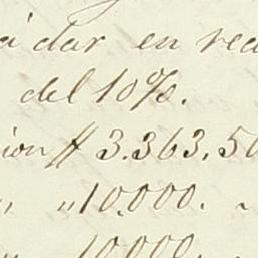 a dar en rea
del 10%.
ion $ 3.363.50
" " 10.000. -
" 10.000. -